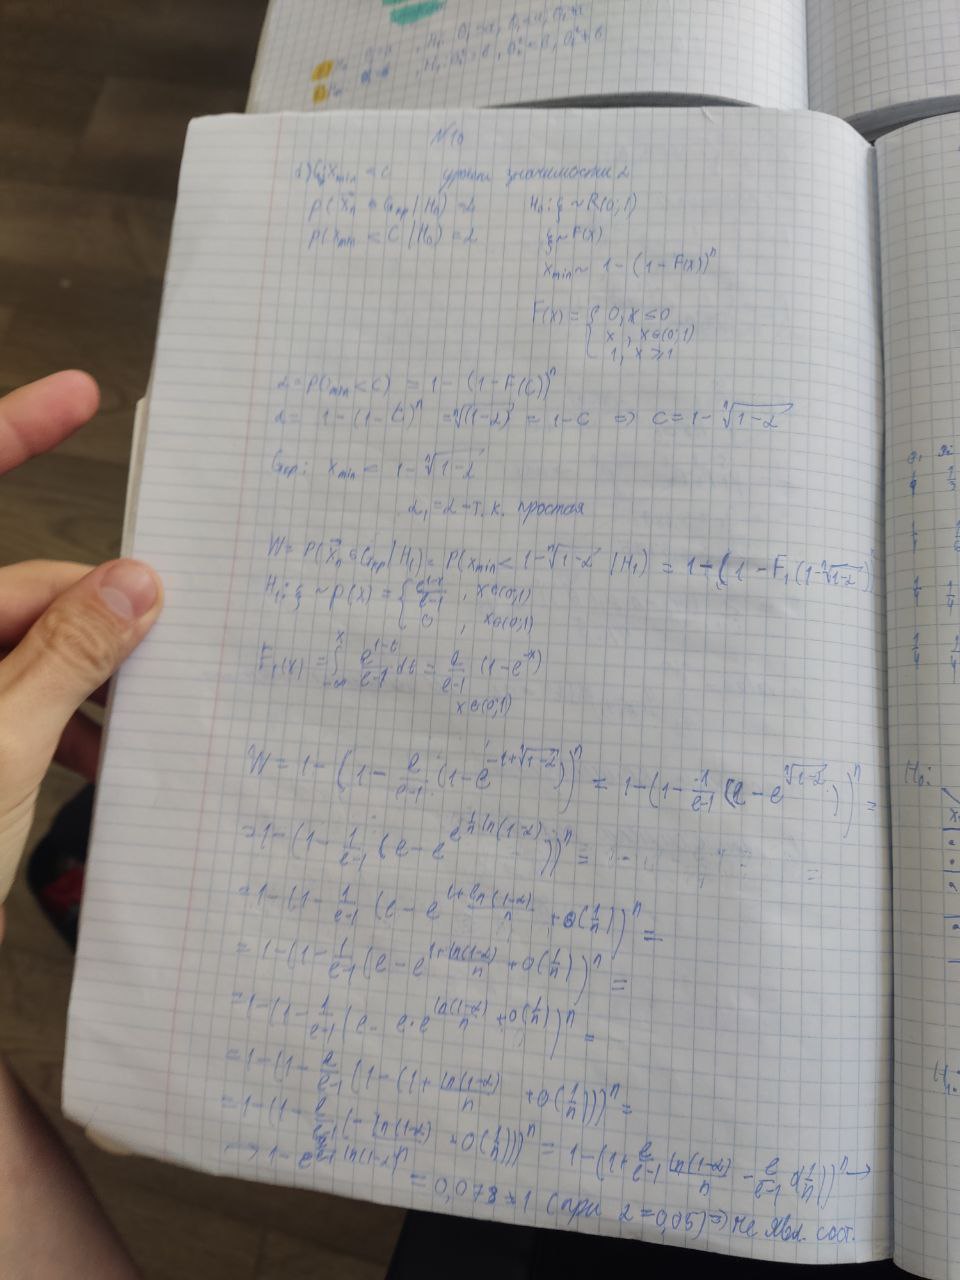 N10
α) Gкр: x_min < c уровень значимости α
P(x̄_n ∈ G_кр | H_0) = α H_0: ξ ~ R(0,1)
P(x_min < C | H_0) = α ξ ~ F(x)
x_min ~ 1 - (1 - F(x))^n
F(x) = { 0, x ≤ 0
x, x ∈ (0;1)
1, x ≥ 1
α = P(x_min < C) = 1 - (1 - F(C))^n
α = 1 - (1 - C)^n = ⁿ√(1-α) = 1 - C ⇒ C = 1 - ⁿ√(1-α)
Gкр: x_min < 1 - ⁿ√(1-α)
α_1 = α - т.к. простая
W = P(x̄_n ∈ G_кр | H_1) = P(x_min < 1 - ⁿ√(1-α) | H_1) = 1 - (1 - F_1(1 - ⁿ√(1-α)))^n
H_1: ξ ~ p(x) = { e^(1-x)/(e-1), x ∈ (0;1)
0, x ∈ (0;1)
F_1(x) = ∫_{-∞}^{x} e^(1-t)/(e-1) dt = e/(e-1) (1 - e^(-x))
x ∈ (0;1)
W = 1 - (1 - e/(e-1) (1 - e^(-1+ⁿ√(1-α))))^n = 1 - (1 - 1/(e-1) (e - e^(ⁿ√(1-α))))^n =
= 1 - (1 - 1/(e-1) (e - e^(e^(1/n ln(1-α)))))^n = =
= 1 - (1 - 1/(e-1) (e - e^(1 + ln(1-α)/n + o(1/n))))^n =
= 1 - (1 - 1/(e-1) (e - e^(1 + ln(1-α)/n) + o(1/n)))^n =
= 1 - (1 - 1/(e-1) (e - e·e^(ln(1-α)/n) + o(1/n)))^n =
= 1 - (1 - e/(e-1) (1 - (1 + ln(1-α)/n + o(1/n))))^n =
= 1 - (1 - e/(e-1) (- ln(1-α)/n + o(1/n)))^n = 1 - (1 + e/(e-1) ln(1-α)/n - e/(e-1) o(1/n))^n →
→ 1 - e^(e/(e-1) ln(1-α))
= 0,078 ≠ 1 (при α = 0,05) ⇒ не явл. сост.
H_0: